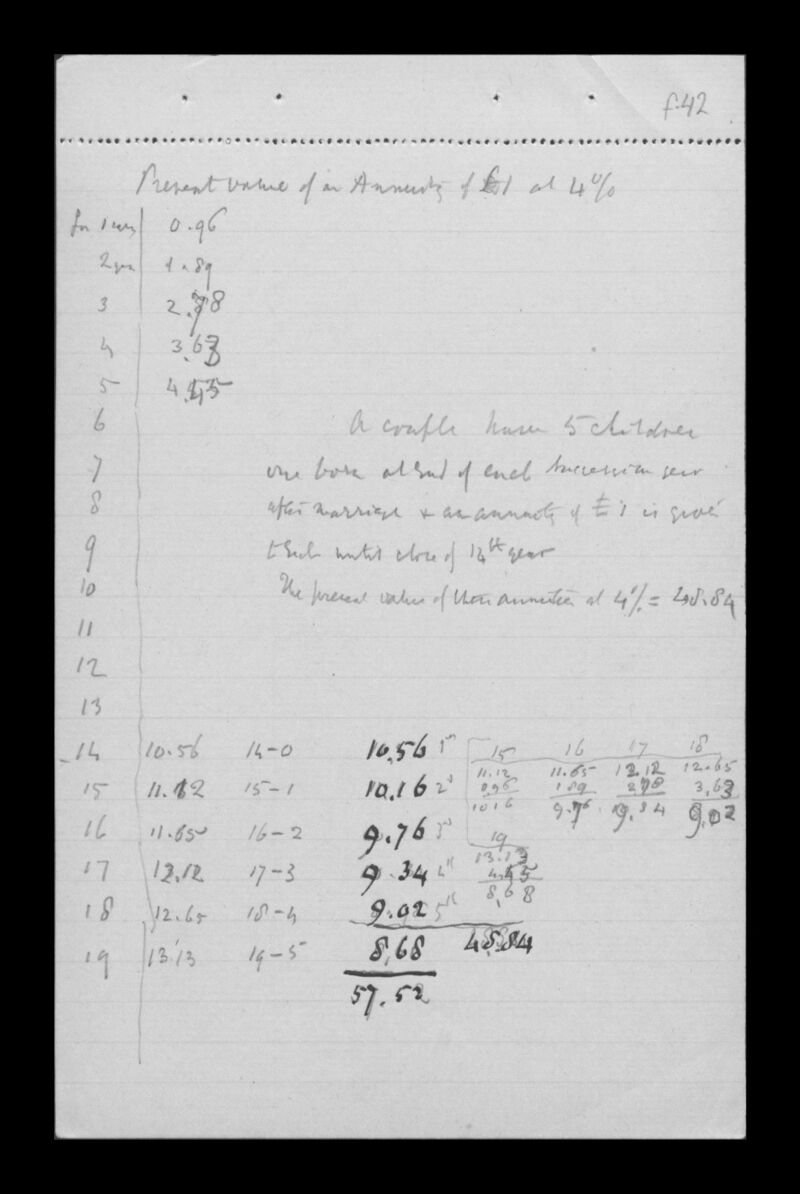 f.42
Present value of an Annuity of £1 at 4%
for 1 year 0.96
2 years 1.89
3 2.78
4 3.63
5 4.45
6 A couple have 5 children
7 one born at end of each successive year
8 after marriage & an annuity of £1 is given
9 to each until close of 14th year
10 The present value of these annuities at 4% = 48.84
11
12
13
14 10.56 14-0 10.56 1st 15 16 17 18
15 11.12 15-1 10.16 2d 11.12 11.65 12.12 12.65
0.96 1.89 2.78 3.63
10.16 9.76 9.34 9.02
16 11.65 16-2 9.76 3d 19
17 12.12 17-3 9.34 4th 13.13
4.45
8.68
18 12.65 18-4 9.02 5th
19 13.13 19-5 8.68 48.84
57.52